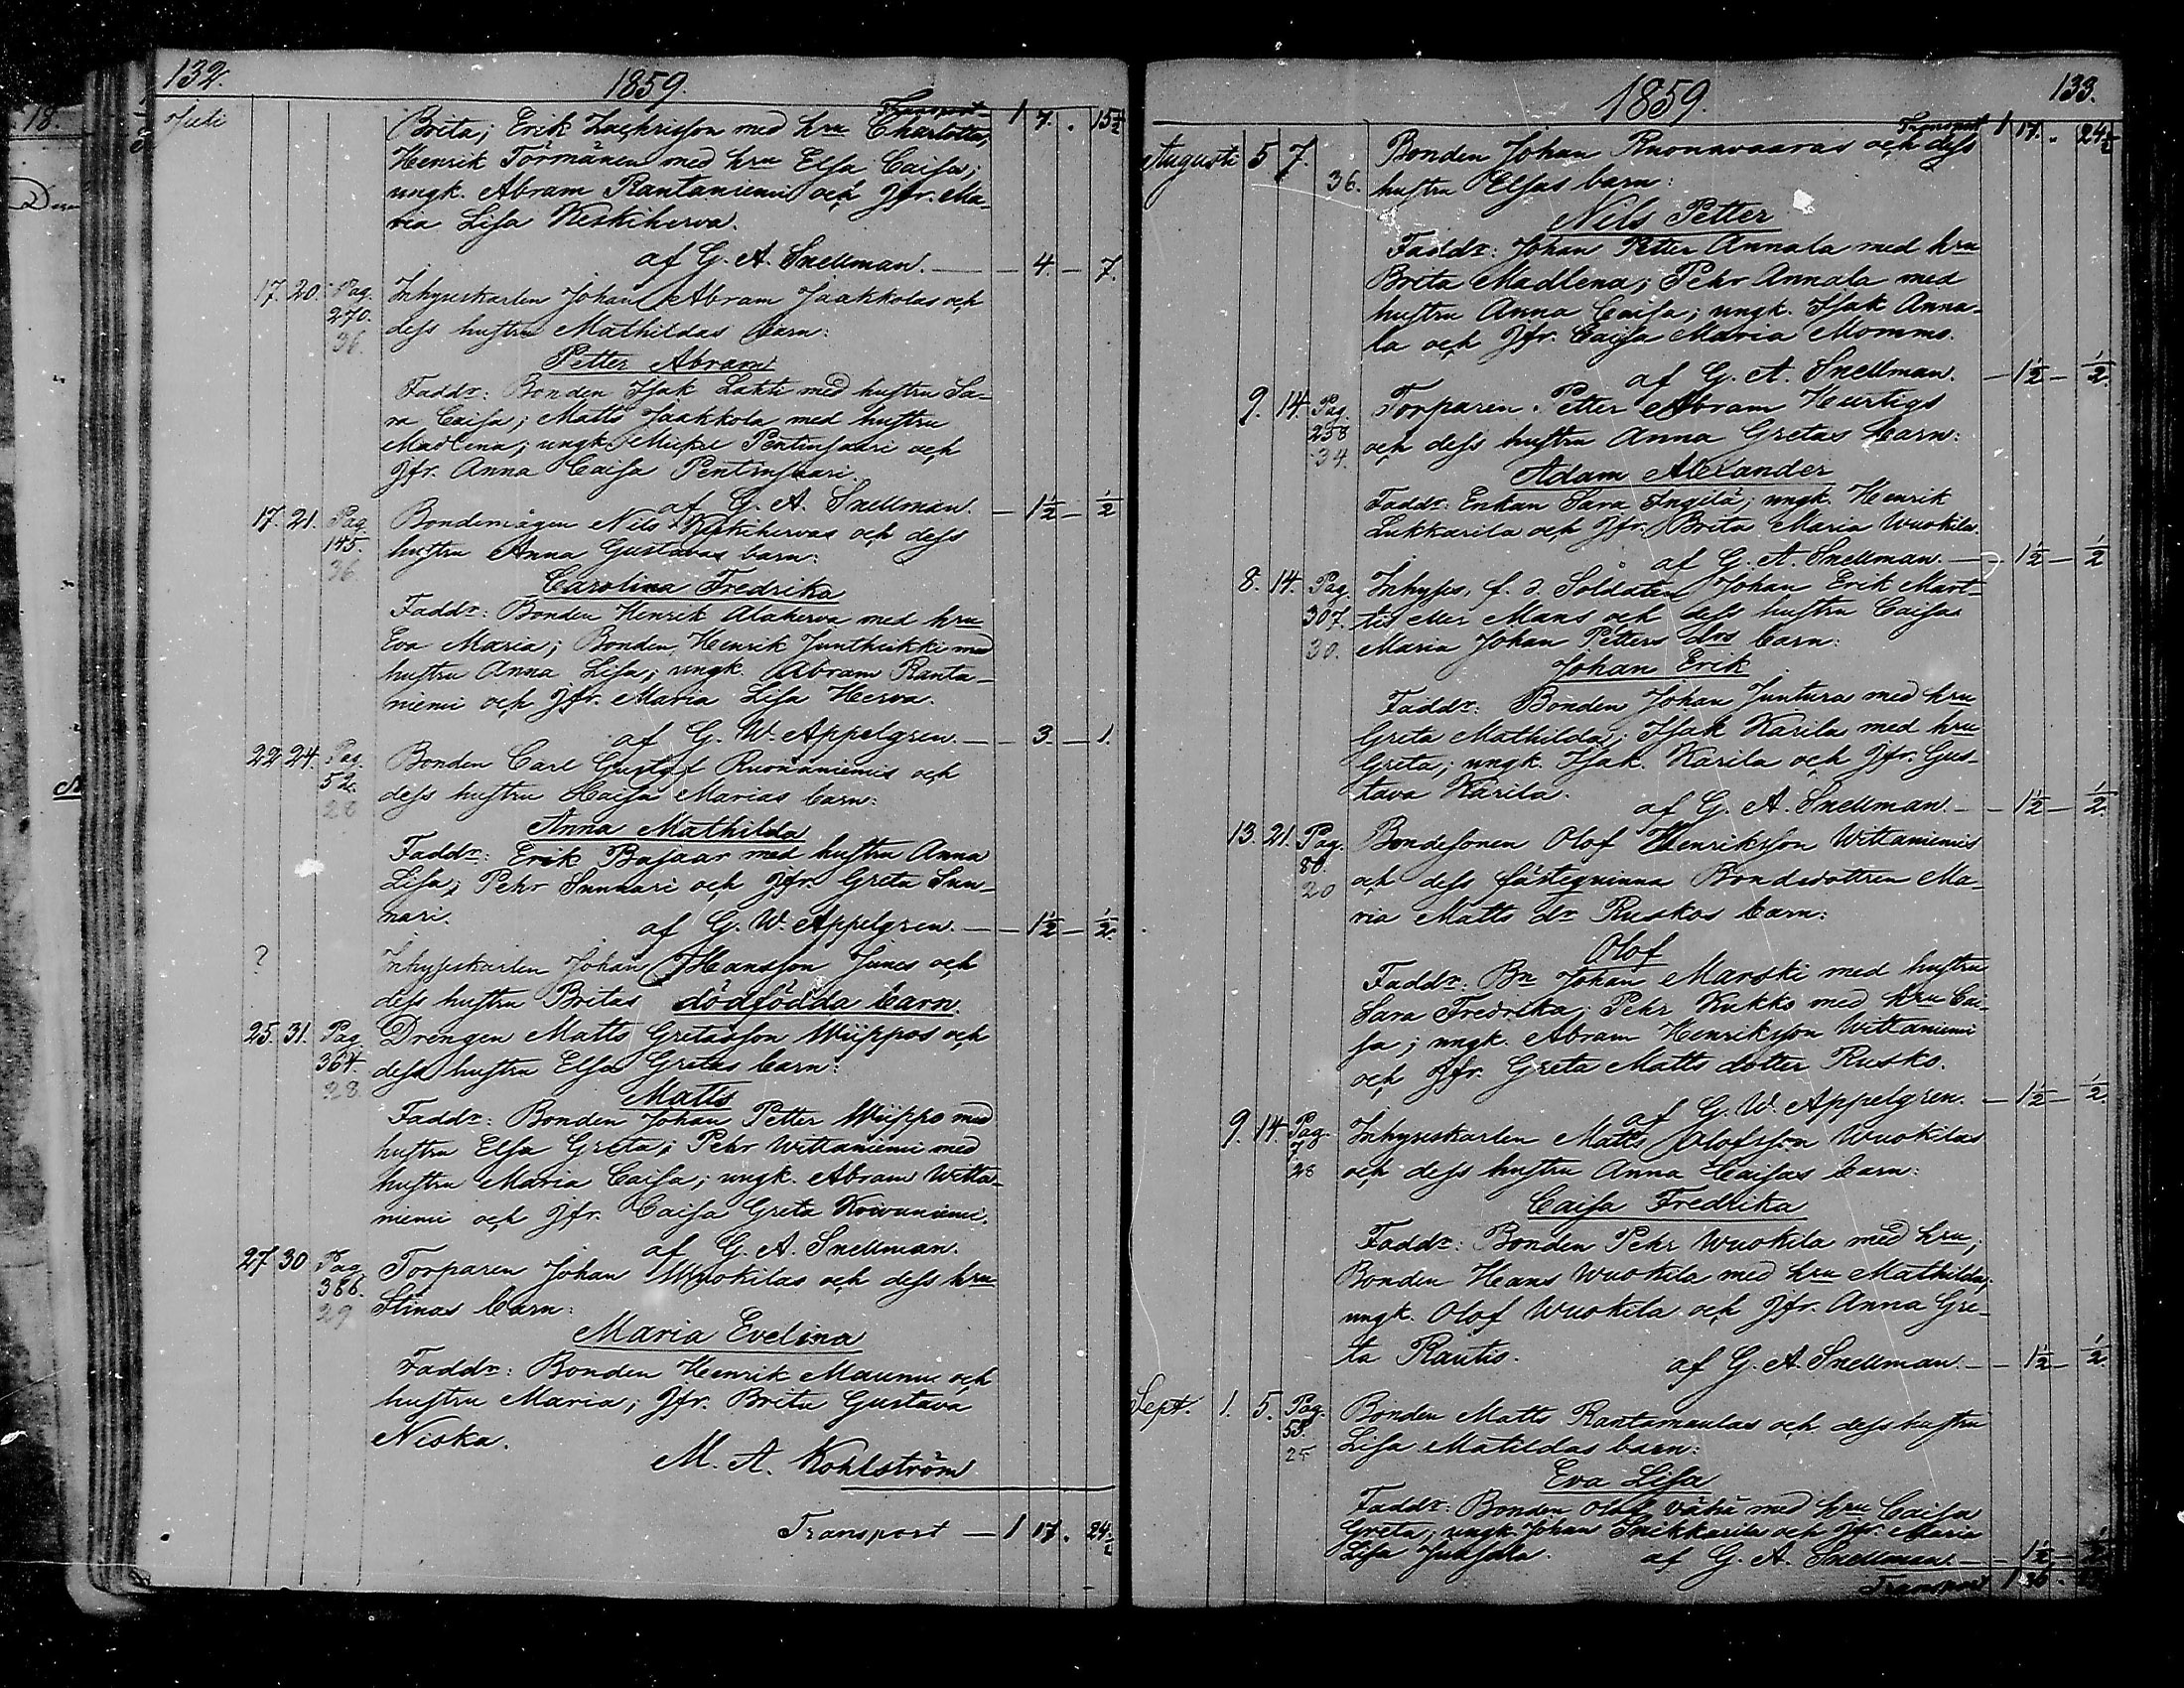 132.
1859.
Juli
Transport 1 7. . 15 1/2
Brita; Erik Zachrisson med hru Charlotta;
Henrik Törmänen med hru Elsa Caisa;
ungk. Abram Rantaniemi och Jfr. Ma-
ria Lisa Keskiherva.
af G. A. Snellman. — 4 — 7.
17. 20. Pag. 270. 36. Inhyseskarlen Johan Abram Jaakkolas och
dess hustru Mathildas barn:
Petter Abram
Faddr: Bonden Isak Lahti med hustru Sa-
ra Caisa; Matts Jaakkola med hustru
Madlena; ungk. Mickel Pentinsaari och
Jfr. Anna Caisa Pentinsaari.
af G. A. Snellman. — 1 1/2 — 1/2
17. 21. Pag 145. 36. Bondemågen Nils Keskihervas och dess
hustru Anna Gustavas barn:
Carolina Fredrika
Faddr: Bonden Henrik Alaherva med hru
Eva Maria; Bonden Henrik Junthikki med
hustru Anna Lisa; ungk. Abram Ranta-
niemi och Jfr. Maria Lisa Herva.
af G. W. Appelgren — 3. — 1.
22 24. Pag. 52. 28 Bonden Carl Gustaf Ruonaniemis och
dess hustru Caisa Marias barn:
Anna Mathilda
Faddr: Erik Basaar med hustru Anna
Lisa; Pehr Sunnari och Jfr. Greta Sun-
nari. af G. W. Appelgren. — 1 1/2 — 1/2.
? Inhyseskarlen Johan Hansson Junes och
dess hustru Britas dödfödda barn.
25. 31. Pag. 364. 28. Drengen Matts Gretasson Wiippos och
dess hustru Elsa Gretas barn:
Matts
Faddr: Bonden Johan Petter Wiippo med
hustru Elsa Greta; Pehr Wittaniemi med
hustru Maria Caisa; ungk. Abram Witta-
niemi och Jfr. Caisa Greta Koivuniemi.
af G. A. Snellman.
27 30 Pag. 386. 29 Torparen Johan Wuokilas och dess hru
Stinas barn:
Maria Evelina
Faddr: Bonden Henrik Maunu och
hustru Maria; Jfr. Brita Gustava
Niska.
M. A. Kohlström
Transport — 1 17. 24 1/2
1859.
133.
Transport 1 17. . 24 1/2
Augusti 5 7. 36. Bonden Johan Ruonavaaras och dess
hustru Elsas barn:
Nils Petter
Faddr: Johan Petter Annala med hru
Brita Madlena; Pehr Annala med
hustru Anna Caisa; ungk. Isak Anna-
la och Jfr. Caisa Maria Mommo.
af G. A. Snellman. — 1 1/2 — 1/2.
9. 14. Pag. 258 34. Torparen Petter Abram Hurtigs
och dess hustru Anna Gretas barn:
Adam Alexander
Faddr: Enkan Sara Ingilä; ungk. Henrik
Lukkarila och Jfr. Brita Maria Wuokila.
af G. A. Snellman. — 1 1/2 — 1/2
8. 14. Pag. 307. 30. Inhyses, f. d. Soldaten Johan Erik Mart-
tis eller Mans och dess hustru Caisa
Maria Johan Petters drs barn:
Johan Erik
Faddr: Bonden Johan Juntura med hru
Greta Mathilda; Isak Karila med hru
Greta; ungk. Isak Karila och Jfr. Gus-
tava Karila. af G. A. Snellman. — 1 1/2 — 1/2.
13. 21. Pag. 80. 20 Bondesonen Olof Henriksson Wittaniemis
och dess fästeqvinna Bondedottren Ma-
ria Matts dr Ruskos barn:
Olof
Faddr: Bn Johan Marski med hustru
Sara Fredrika; Pehr Kukko med hru Cai-
sa; ungk. Abram Henriksson Wittaniemi
och Jfr. Greta Matts dotter Rusko.
af G. W. Appelgren. — 1 1/2 — 1/2.
9. 14. Pag. 7 28 Inhyseskarlen Matts Olofsson Wuokilas
och dess hustru Anna Caisas barn:
Caisa Fredrika
Faddr: Bonden Pehr Wuokila med hru;
Bonden Hans Wuokila med hru Mathilda;
ungk. Olof Wuokila och Jfr. Anna Gre-
ta Rautio. af G. A. Snellman. — 1 1/2 — 1/2.
Sept. 1. 5. Pag. 58. 25 Bonden Matts Rantamaulas och dess hustru
Lisa Matildas barn:
Eva Lisa
Faddr: Bonden Olof Vähä med hru Caisa
Greta; ungk. Johan Snikkarila och Jfr. Maria
Lisa af G. A. Snellman. — 1 1/2 —
Transport 1